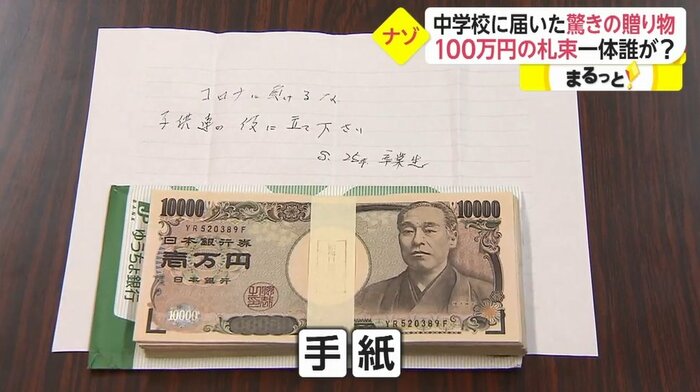 ナゾ
中学校に届いた驚きの贈り物
100万円の札束一体誰が？
まるっと!
コロナに負けるな
子供達の役に立て下さい
S.25年 卒業生
10000
10000
YR520389F
日本銀行券
壱万円
日本銀行
10000
YR520389F
JP
BANK
ゆうちょ銀行
手紙